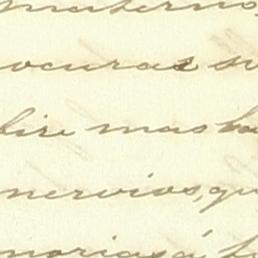 materno,
ocuras su
bire mas ha
nervios, qu
morias á